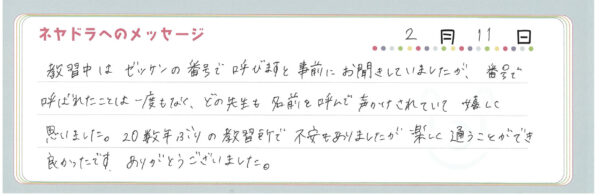 ネヤドラへのメッセージ 2月11日
教習中は ゼッケンの番号で 呼びますと 事前に お聞きしていましたが、番号で
呼ばれたことは 一度もなく、どの先生も 名前を呼んで 声かけされていて 嬉しく
思いました。20数年ぶりの教習所で 不安もありましたが 楽しく 通うことができ
良かったです ありがとうございました。